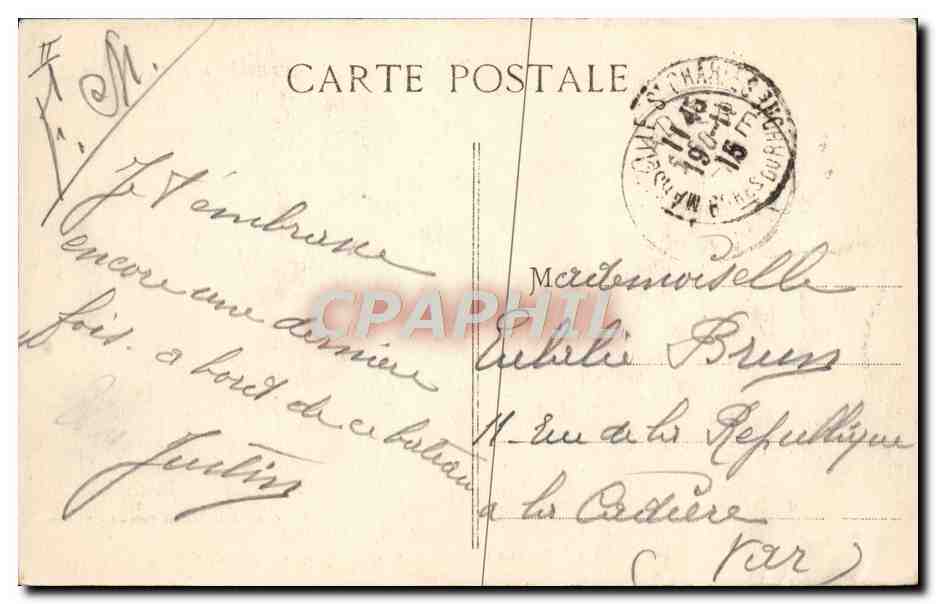 CARTE POSTALE
F. M.
Je t'embrasse
encore une dernière
fois. a bord de ce bateau
Justin
Mademoiselle
Eulalie Brun
11 Rue de la Republique
a la Cadière
(Var)
MARSEILLE ST CHARLES
11 45
19
15
CPAPHIL